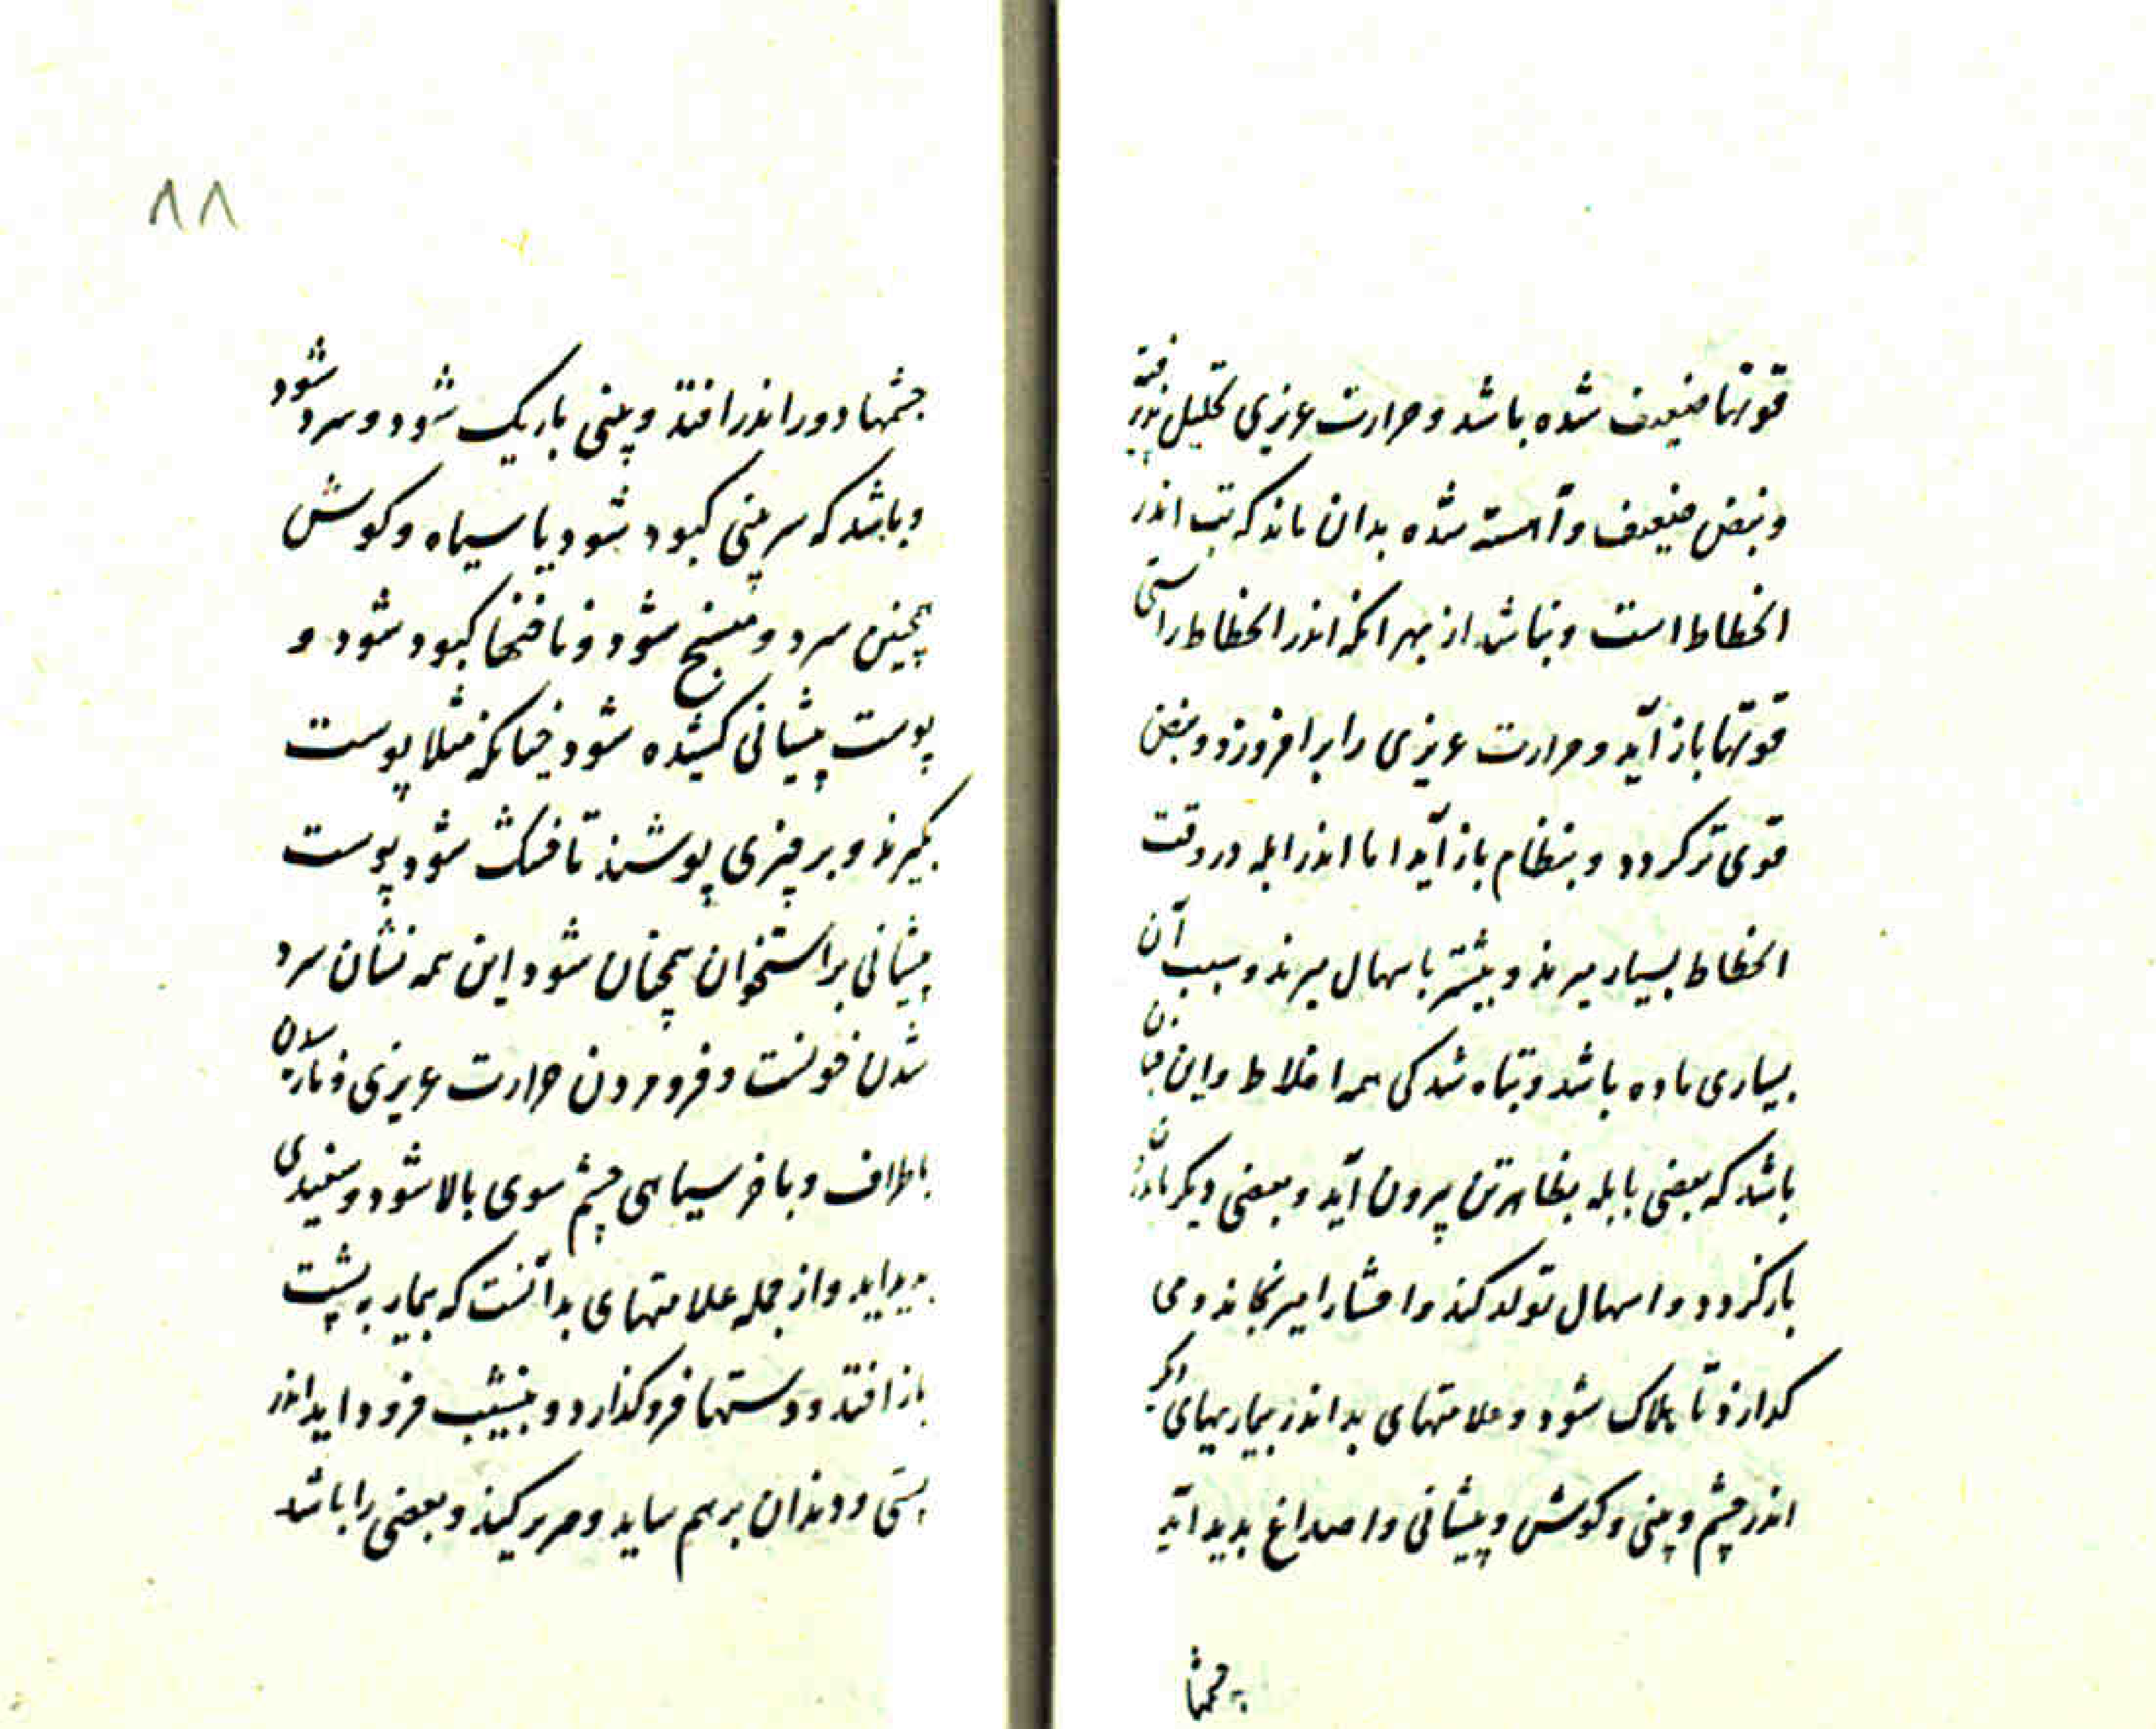 قوتها ضعیف شده باشد و حرارت عزیزی تحلیل پذیرفته
و نبض ضعیف و آهسته شده بدان ماند که تب اندر
انحطاط است و نباشد از بهر انکه اندر انحطاط راستی
قوتها باز آید و حرارت عزیزی را برافروزد و نبض
قوی تر کردد و بنظام باز آید اما اندر ابله در وقت
انحطاط بسیار میرند و بیشتر باسهال میرند و سبب آن
بسیاری ماده باشد و تباه شدکی همه اخلاط و این چنان
باشد که بعضی بابله بظاهر تن بیرون آید و بعضی دیکر باندرون
باز کردد و اسهال تولد کند و احشا را میرنجاند و می
کدازد تا هلاک شود و علامتهای بد اندر بیماریهای دیکر
اندر چشم و بینی و کوش و پیشانی و اصداغ بدید آید
چشمها
۸۸
چشمها دور اندر افتد و بینی باریک شود و سرد شود
و باشد که سر بینی کبود شود یا سیاه و کوش
همچنین سرد و متشنج شود و ناخنها کبود شود و
پوست پیشانی کشیده شود چنانکه مثلا پوست
بکیرند و بر چیزی پوشند تا خشک شود پوست
پیشانی بر استخوان همچنان شود این همه نشان سرد
شدن خونست و فرو مردن حرارت عزیزی و نارسیدن
باطراف و باخر سیاهی چشم سوی بالا شود و سفیدی
بدید اید و از جمله علامتهای بد آنست که بیمار به پشت
باز افتد و دستها فرو کذارد و بنشیب فرود اید اندر
پستی و دندان بر هم ساید و صریر کند و بعضی را باشد